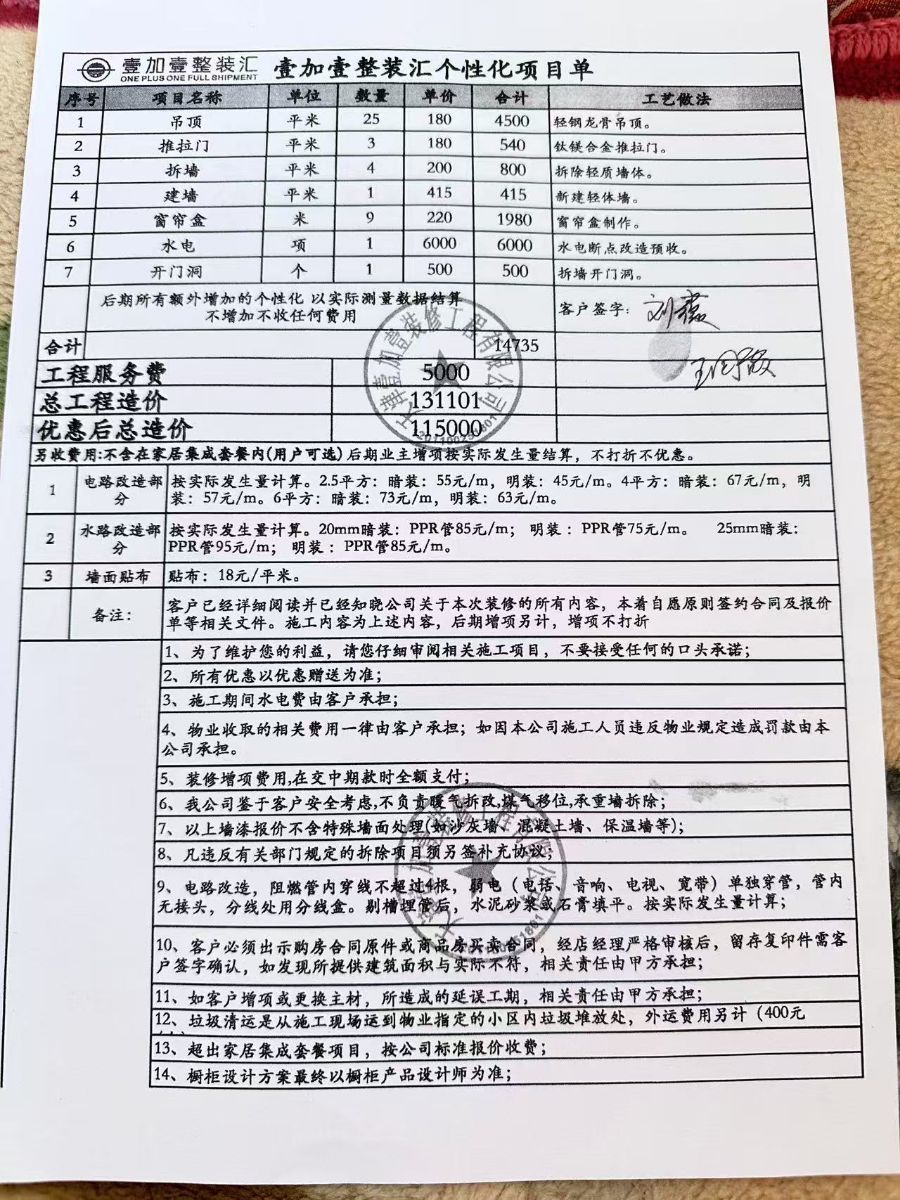 壹加壹整装汇
ONE PLUS ONE FULL SHIPMENT
壹加壹整装汇个性化项目单
序号 项目名称 单位 数量 单价 合计 工艺做法
1 吊顶 平米 25 180 4500 轻钢龙骨吊顶。
2 推拉门 平米 3 180 540 钛镁合金推拉门。
3 拆墙 平米 4 200 800 拆除轻质墙体。
4 建墙 平米 1 415 415 新建轻体墙。
5 窗帘盒 米 9 220 1980 窗帘盒制作。
6 水电 项 1 6000 6000 水电断点改造预收。
7 开门洞 个 1 500 500 拆墙开门洞。
后期所有额外增加的个性化 以实际测量数据结算
不增加不收任何费用
客户签字：
合计 14735
工程服务费 5000
总工程造价 131101
优惠后总造价 115000
另收费用:不含在家居集成套餐内(用户可选)后期业主增项按实际发生量结算，不打折不优惠。
1 电路改造部分 按实际发生量计算。2.5平方：暗装：55元/m，明装：45元/m。4平方：暗装：67元/m，明
装：57元/m。6平方：暗装：73元/m，明装：63元/m。
2 水路改造部分 按实际发生量计算。20mm暗装：PPR管85元/m； 明装：PPR管75元/m。 25mm暗装：
PPR管95元/m； 明装：PPR管85元/m。
3 墙面贴布 贴布：18元/平米。
备注： 客户已经详细阅读并已经知晓公司关于本次装修的所有内容，本着自愿原则签约合同及报价
单等相关文件。施工内容为上述内容，后期增项另计，增项不打折
1、为了维护您的利益，请您仔细审阅相关施工项目，不要接受任何的口头承诺；
2、所有优惠以优惠赠送为准；
3、施工期间水电费由客户承担；
4、物业收取的相关费用一律由客户承担；如因本公司施工人员违反物业规定造成罚款由本
公司承担。
5、装修增项费用,在交中期款时全额支付；
6、我公司鉴于客户安全考虑,不负责暖气拆改,煤气移位,承重墙拆除；
7、以上墙漆报价不含特殊墙面处理(如沙灰墙、混凝土墙、保温墙等)；
8、凡违反有关部门规定的拆除项目须另签补充协议；
9、电路改造，阻燃管内穿线不超过4根，弱电（电话、音响、电视、宽带）单独穿管，管内
无接头，分线处用分线盒。剔槽埋管后，水泥砂浆或石膏填平。按实际发生量计算；
10、客户必须出示购房合同原件或商品房买卖合同，经店经理严格审核后，留存复印件需客
户签字确认，如发现所提供建筑面积与实际不符，相关责任由甲方承担；
11、如客户增项或更换主材，所造成的延误工期，相关责任由甲方承担；
12、垃圾清运是从施工现场运到物业指定的小区内垃圾堆放处，外运费用另计（400元
13、超出家居集成套餐项目，按公司标准报价收费；
14、橱柜设计方案最终以橱柜产品设计师为准；